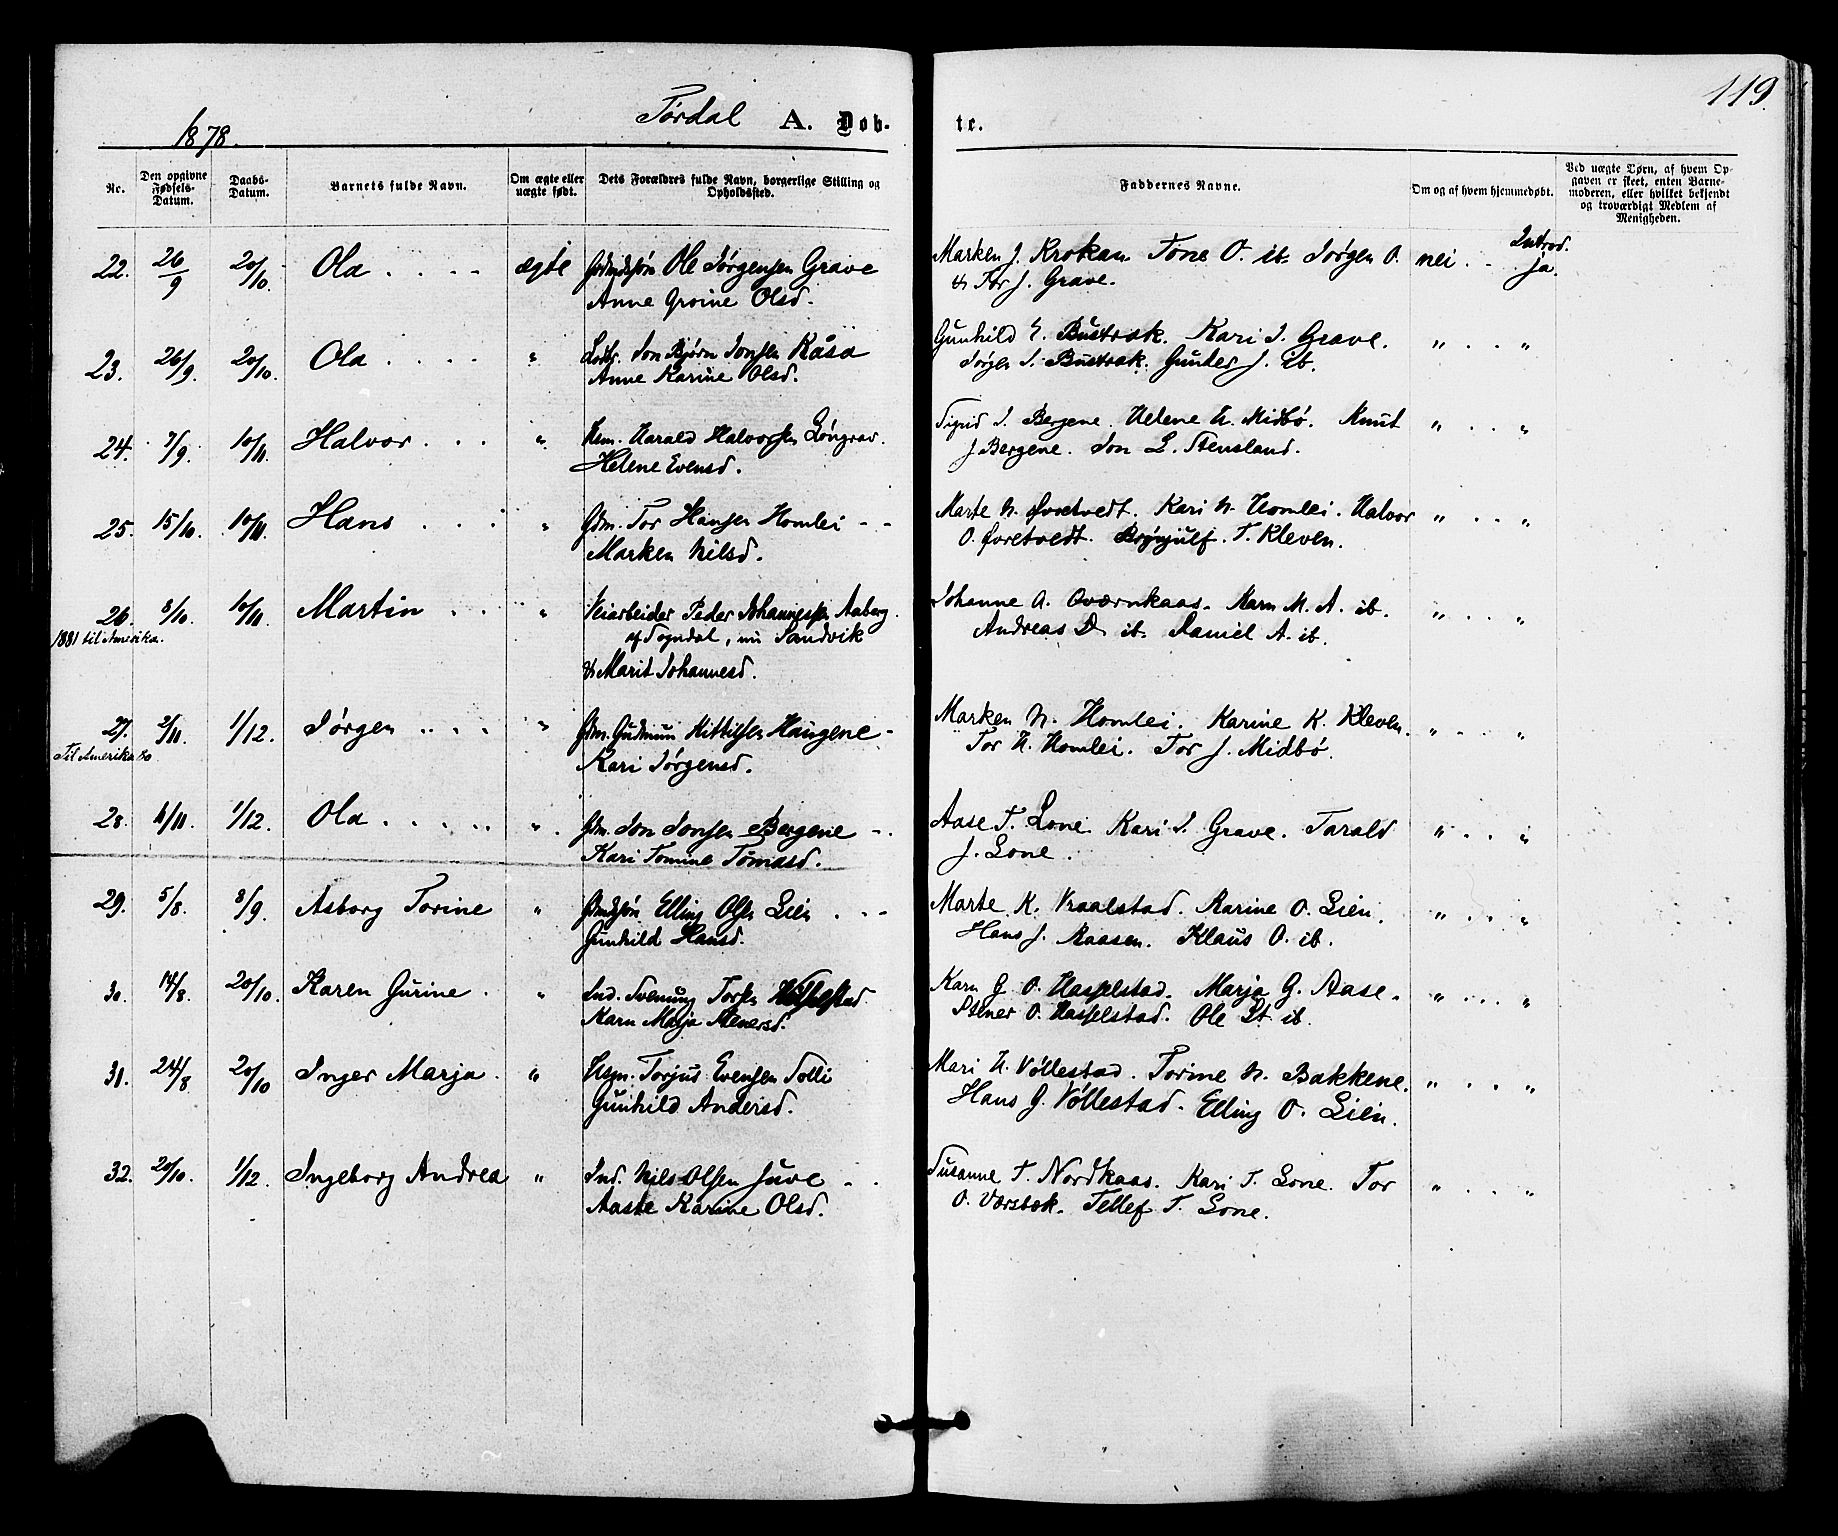 119.
Tørdal A. Døb- te.
1878.
Nr.
Den opgivne Fødsels- Datum.
Daabs- Datum.
Barnets fulde Navn.
Om ægte eller uægte født.
Dets Forældres fulde Navn, borgerlige Stilling og Opholdssted.
Faddernes Navne.
Om og af hvem hjemmedøbt.
Ved uægte Børn, af hvem Op- gaven er skeet, enten Barne- moderen, eller hvilket bekjendt og troværdigt Medlem af Menigheden.
Introd.
22. 26/9 20/10. Ola . . . . ægte Gdmdsøn Ole Jørgensen Grave Marken J. Krokan. Tone O. ib. Jørgen O. nei . - ja.
Anne Groine Olsd. & Tor J. Grave.
23. 26/9. 20/10. Ola . . . . " Jon Bjørn Jonsen Råsa Gunhild E. Bustrak. Kari J. Grave. " . . "
Anne Karine Olsd. Jørgen J. Bustrak. Gunder J. ib.
24. 7/9. 10/11. Halvor . . . " Hsm. Harald Halvorsen Løngrav. Sigrid J. Bergene. Helene H. Midbø. Knut " . . "
Helene Evensd. J Bergene. Jon L. Stensland.
25. 15/10. 10/11. Hans . . . " Gdm. Tor Hansen Homlei - - Marte N. Øvretvedt. Kari N. Homlei. Halvor " . . "
Marken Nilsd. O. Øvretvedt. Brynjulf. T. Kleven.
26. 8/10. 10/11. Martin . . . " Veiarbeider Peder Johannessen Aaberg. Johanne A. Oværnkaas. Karn M. A. ib. " . . "
1881 til Amerika. af Sogndal, nu Sandvik Andreas D. ib. Daniel A. ib.
& Marit Johannesd.
27. 2/11. 1/12. Jørgen . . . . " Gdm. Gudmun Kittilsen Haugene - Marken N. Homlei. Karine K. Kleven. " . . "
Til Amerika 80 Kari Jørgensd. Tor H. Homlei. Tor J. Midbø.
28. 6/11. 1/12. Ola . . . . . " . Gdm. Jon Jonsen Bergene - . Aase T. Lone. Kari J. Grave. Tarald " . . "
Kari Tomine Tomasd. J. Lone.
29. 5/8. 8/9. Asborg Torine " Gdmdsøn Elling Olsen Lien . - - Marte K. Vraalstad. Karine O. Lien. " . . "
Gunhild Hansd. Hans J. Raasen. Klaus O. ib.
30. 14/8. 20/10. Karen Gurine . " Ind. Svenung Torsen Hasselstad Karn G O. Hasselstad. Marja G. Aase. " . . . "
Karn Marja Stenersd. Stener O. Hasselstad. Ole St. ib.
31. 24/8. 20/10 Inger Marja . " Hsm. Torjus Evensen Tolli Mari H. Vøllestad. Torine N. Bakkene. " . . . "
Gunhild Andersd. Hans G. Vøllestad. Elling O. Lien.
32. 20/10. 1/12. Ingeborg Andrea " Ind. Nils Olsen Juve - . Susanne T. Nordkaas. Kari T. Lone. Tor " . . . "
Aaste Karine Olsd. O. Værsbak. Tellef T. Lone.